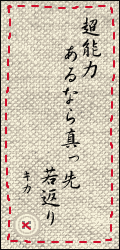 超能力
あるなら真っ先
若返り
キカ